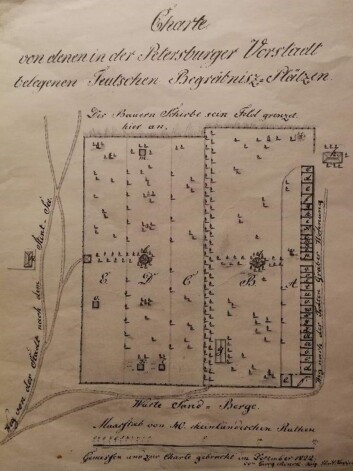 Charte
von denen in der Petersburger Vorstadt
belegenen Teutschen Begräbnisz-Plätzen.
Der Bauern Schirbe sein Feld grenzet
hier an,
E D C B A
Weg von der Stadt nach dem Stadt-
Weg nach der Todten Gräber Wohnung
Wüste Sand-Berge.
Maasstab von 40. rheinländischen Ruthen
Gemessen und zur Charte gebracht im December 1822
von